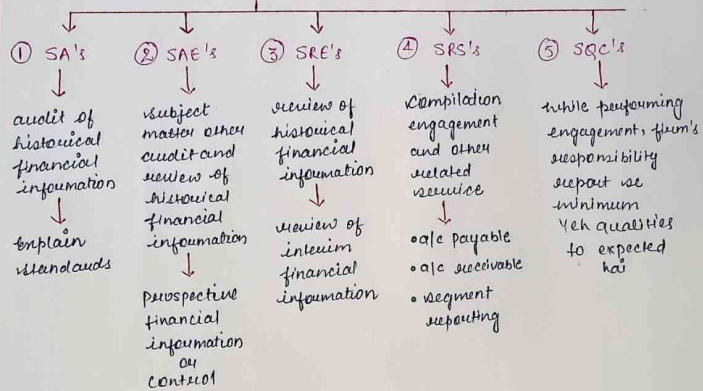 ① SA's
audit of
historical
financial
information
Explain
standards
② SAE's
subject
matter other
audit and
review of
historical
financial
information
prospective
financial
information
or
control
③ SRE's
review of
historical
financial
information
review of
interim
financial
information
④ SRS's
compilation
engagement
and other
related
service
• a/c payable
• a/c receivable
• segment
reporting
⑤ SQC's
while performing
engagement, firm's
responsibility
report se
minimum
Yeh qualities
to expected
hai